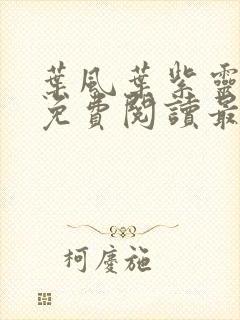 葉風葉紫靈
免費閱讀最
柯慶施